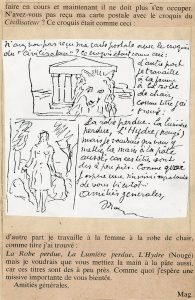 faire en cours et maintenant il ne doit plus s'en occuper.
N'avez-vous pas reçu ma carte postale avec le croquis du
Civilisateur ? Ce croquis était comme ceci :
N'avez-vous pas reçu ma carte postale avec le croquis
du "Civilisateur" ? Ce croquis était comme ceci :
d'autre part
je travaille
à la femme
à la robe
de chair
comme titre j'ai
trouvé :
La robe perdue, La lumière
perdue, L'Hydre (Nougé)
mais je voudrais que vous
mettiez la main à la pâte
aussi, car ces titres sont
à peu près. Comme quoi
j'espère une missive importante
de vous bientôt.
Amitiés générales,
Mag
d'autre part je travaille à la femme à la robe de chair
comme titre j'ai trouvé :
La Robe perdue, La Lumière perdue, L'Hydre (Nougé)
mais je voudrais que vous mettiez la main à la pâte aussi,
car ces titres sont des à peu près. Comme quoi j'espère une
missive importante de vous bientôt.
Amitiés générales.
Mag.